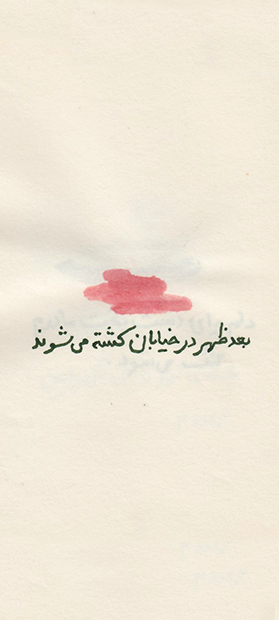 بعد ظهر در خیابان کشته می‌شوند